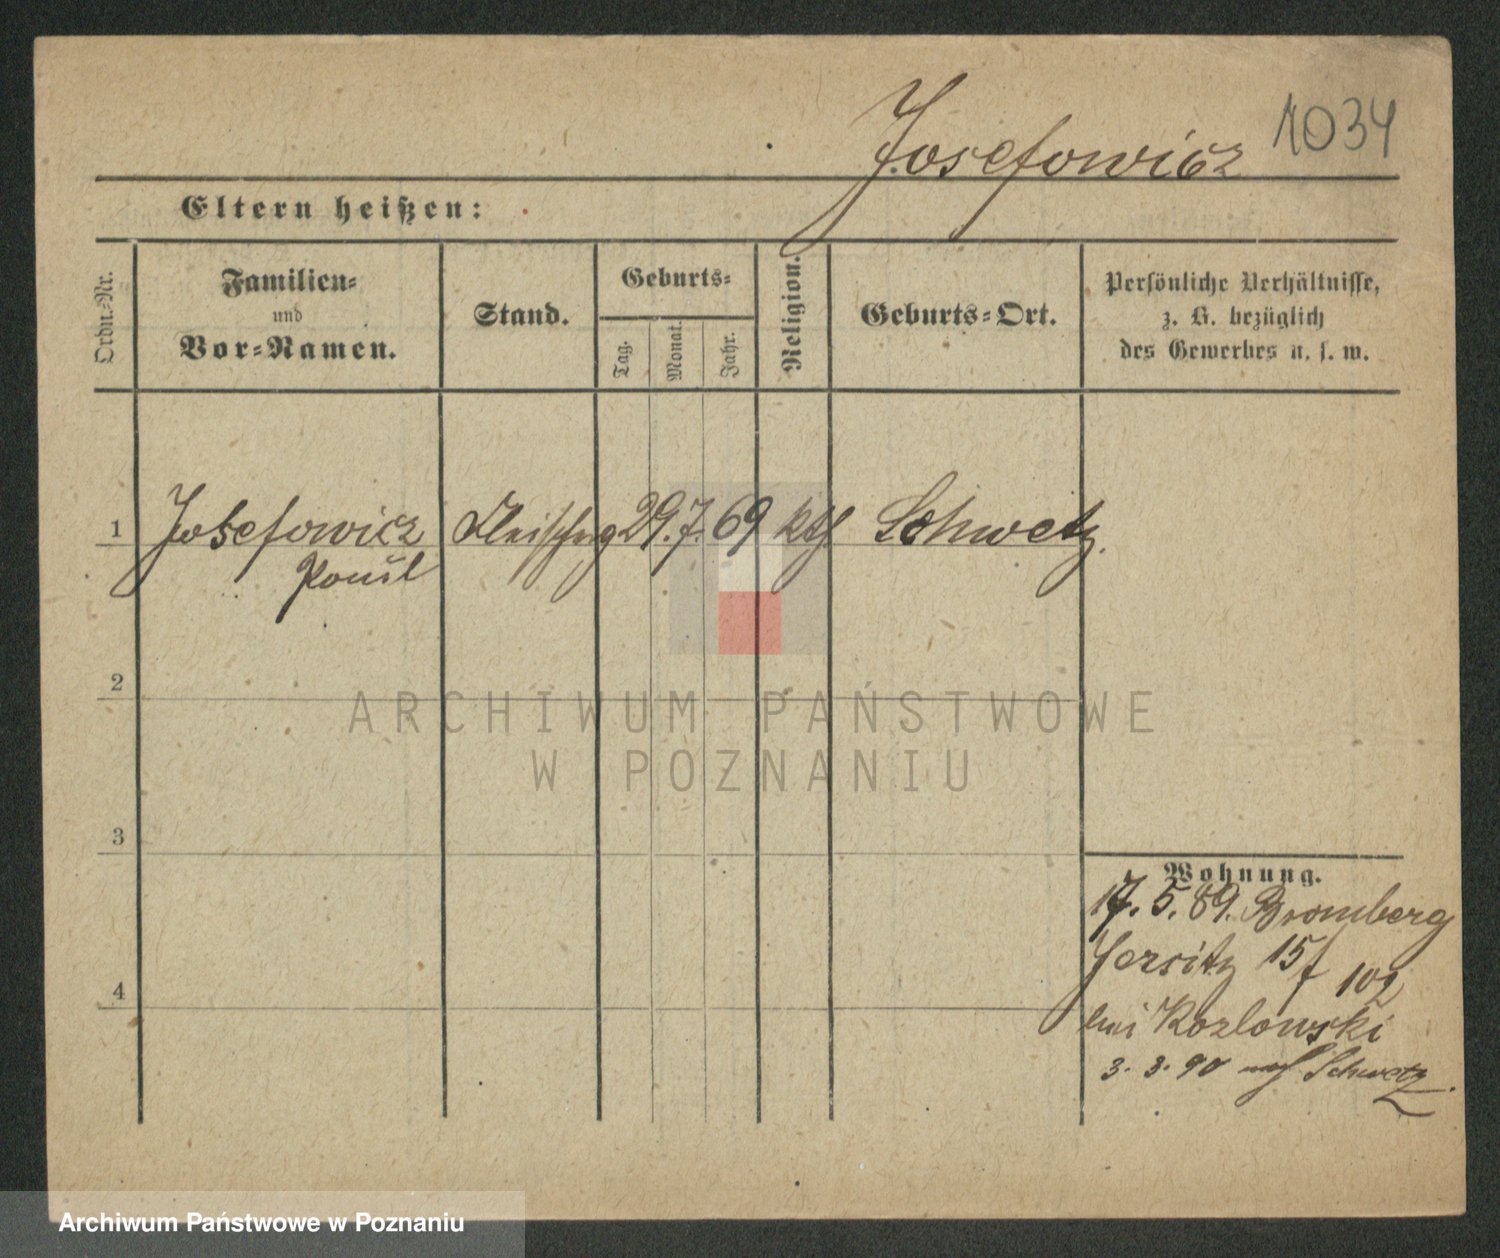 Josefowicz 1034
Eltern heißen:
Ordn.-Nr.
Familien-
und
Vor-Namen.
Stand.
Geburts-
Tag.
Monat.
Jahr.
Religion.
Geburts-Ort.
Persönliche Verhältnisse,
z. B. bezüglich
des Gewerbes u. s. w.
1 Josefowicz Fleischerg 29. 7. 69 kth Schwetz.
Paul
2
3
4
ARCHIWUM PAŃSTWOWE
W POZNANIU
Wohnung.
17. 5. 89. Bromberg
Jersitz 15/ 102
bei Kozlowski
3. 3. 90 nach Schwetz.
Archiwum Państwowe w Poznaniu